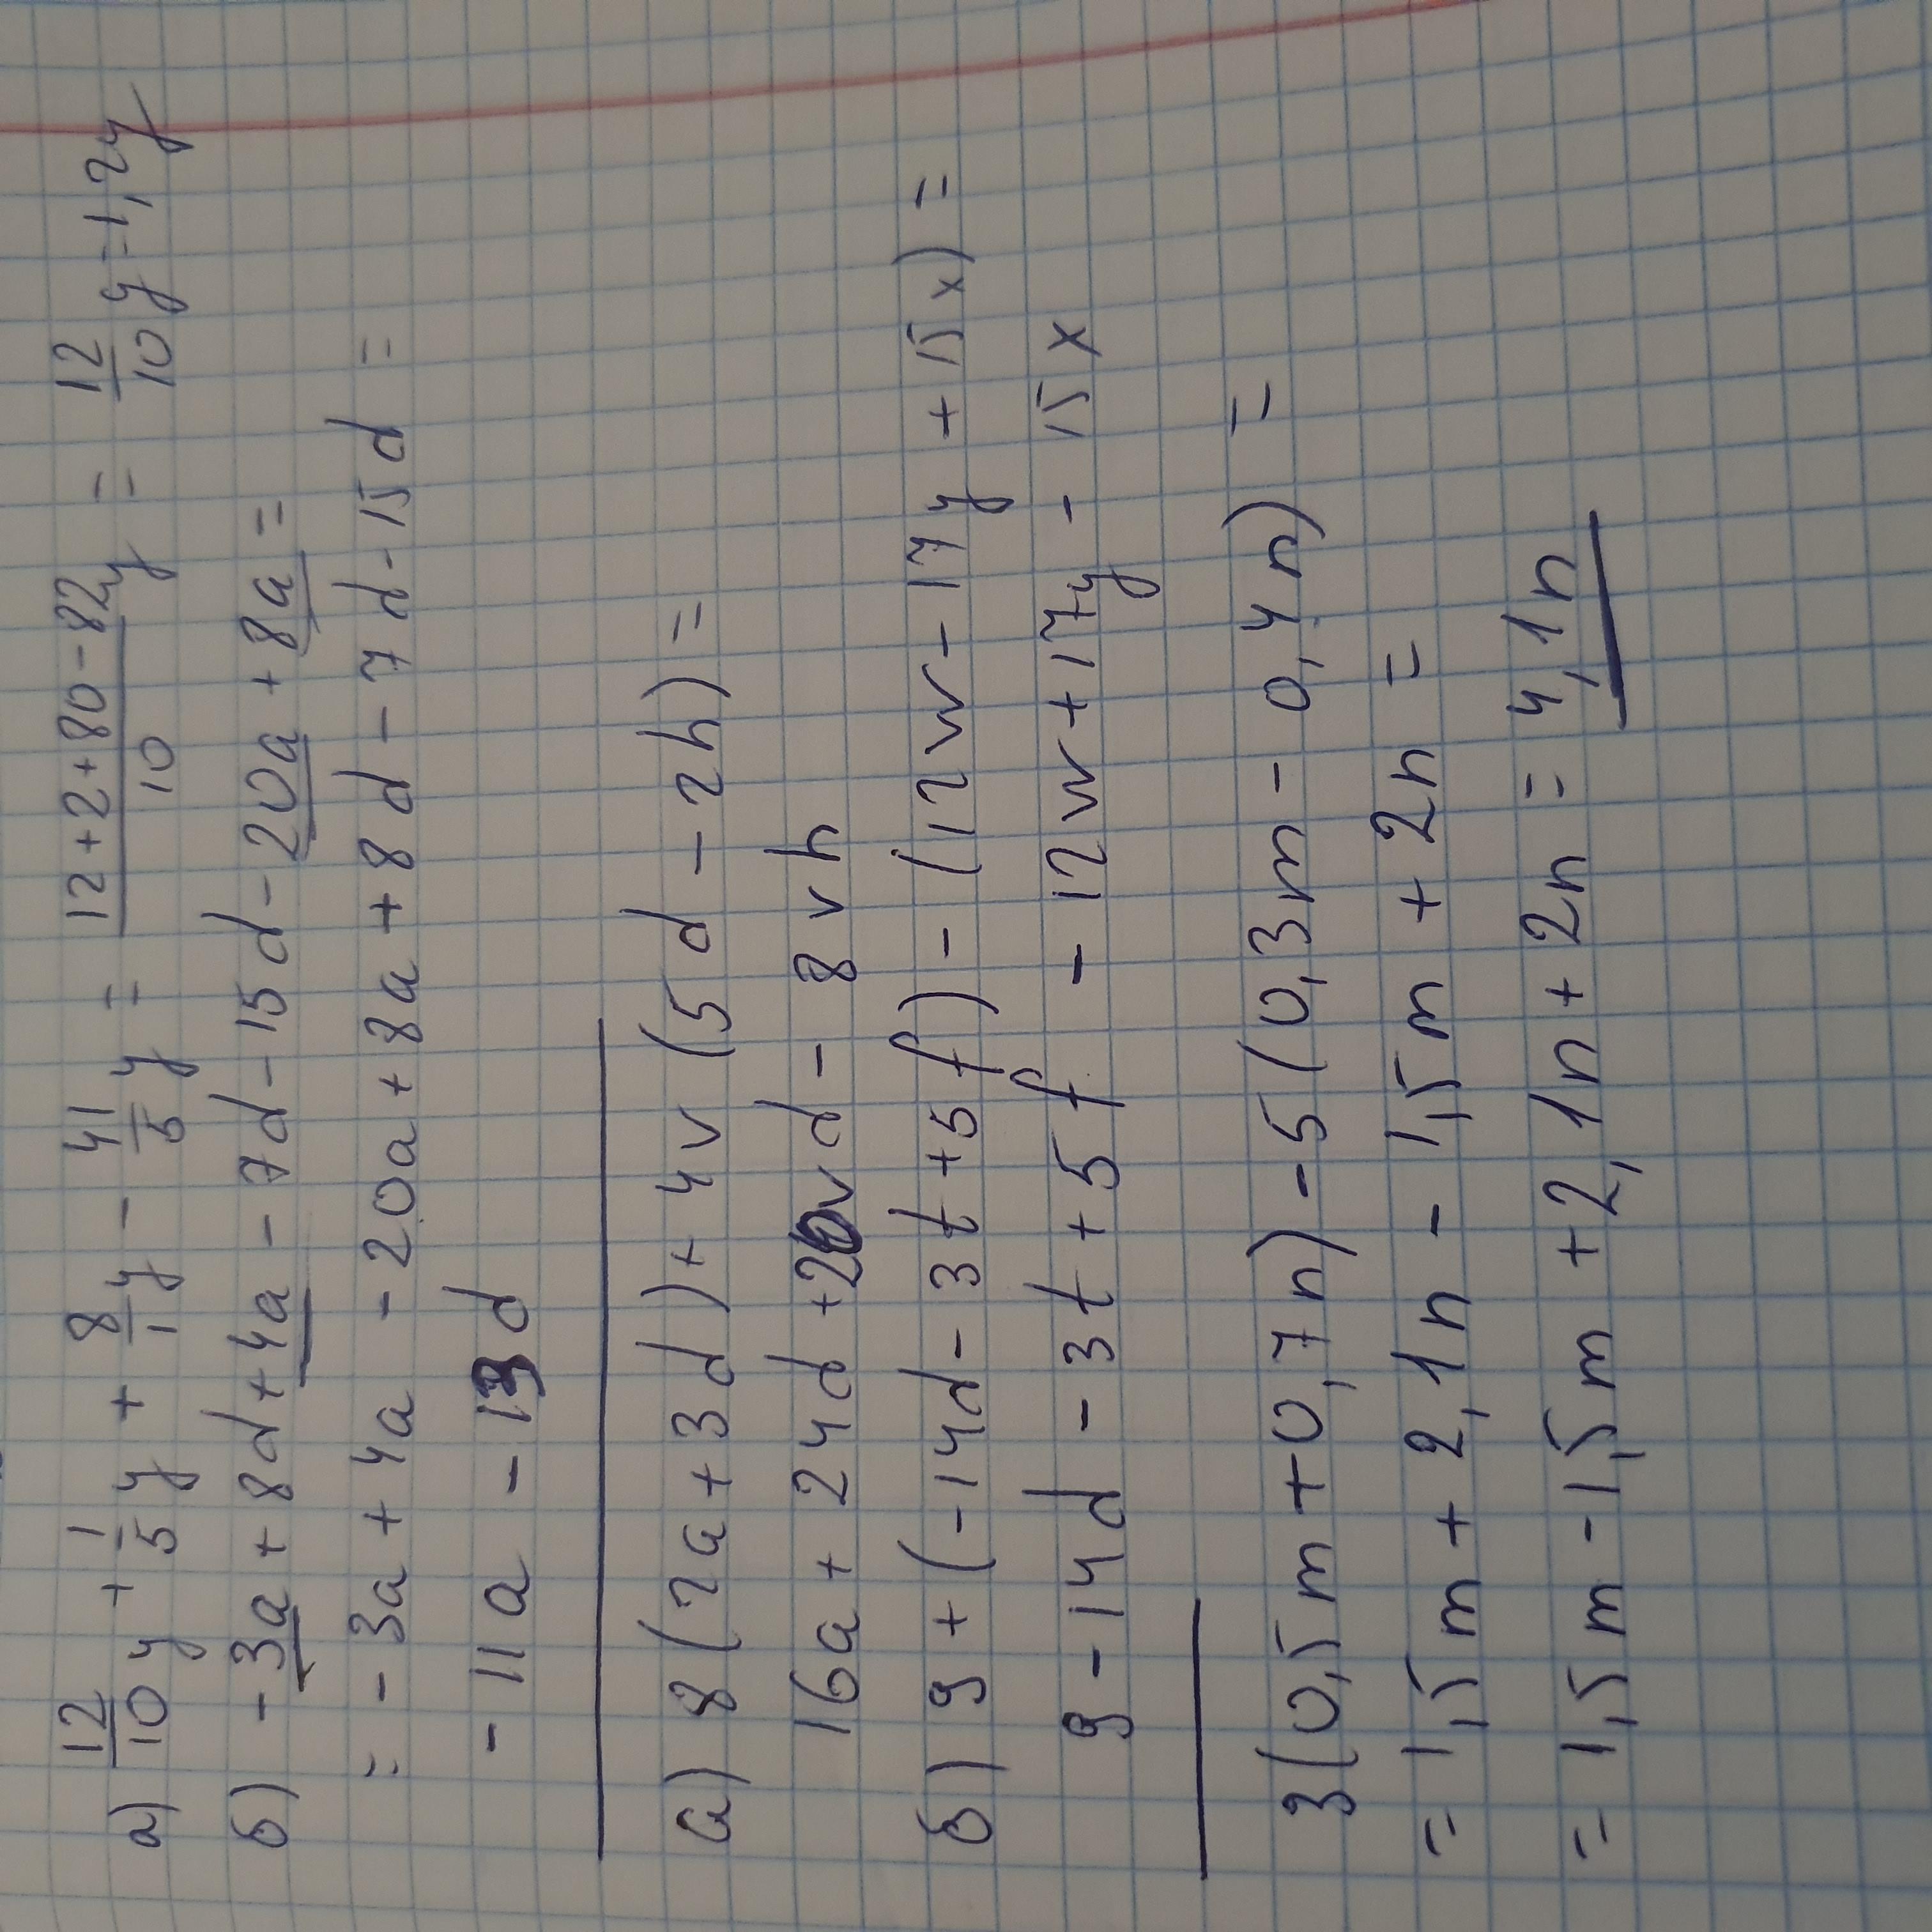 а) 12/10 y + 1/5 y + 8/1 y - 41/5 y = (12+2+80-82)/10 y = 12/10 y = 1,2y
б) -3a + 8d + 4a - 7d - 15d - 20a + 8a =
= -3a + 4a - 20a + 8a + 8d - 7d - 15d =
-11a - 13d
а) 8 (2a + 3d) + 4v (5d - 2h) =
16a + 24d + 20vd - 8vh
б) 9 + (-14d - 3t + 5f) - (12w - 17y + 15x) =
9 - 14d - 3t + 5f - 12w + 17y - 15x
3(0,5m + 0,7n) - 5(0,3m - 0,4n) =
= 1,5m + 2,1n - 1,5m + 2n =
= 1,5m - 1,5m + 2,1n + 2n = 4,1n